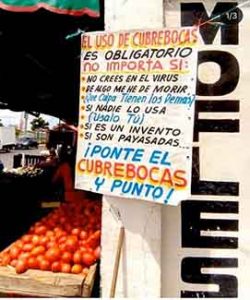 1/3
EL USO DE CUBREBOCAS
ES OBLIGATORIO
no IMPORTA SI:
- NO CREES EN EL VIRUS
- DE ALGO ME HE DE MORIR
(Que Culpa Tienen los Demás)
- SI NADIE LO USA
(Úsalo TÚ)
- SI ES UN INVENTO
- SI SON PAYASADAS.
¡PONTE EL
CUBREBOCAS
Y PUNTO!
MOLES